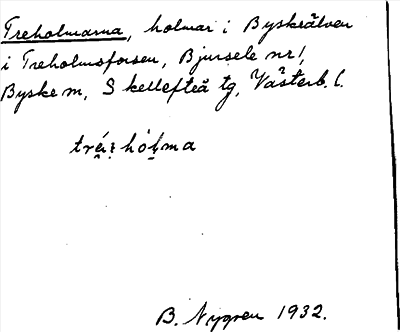 Treholmarna, holmar i Byskeälven
i Treholmsforsen, Bjursele nr 1,
Byske m, Skellefteå tg, Västerb. l.
B. Nygren 1932.